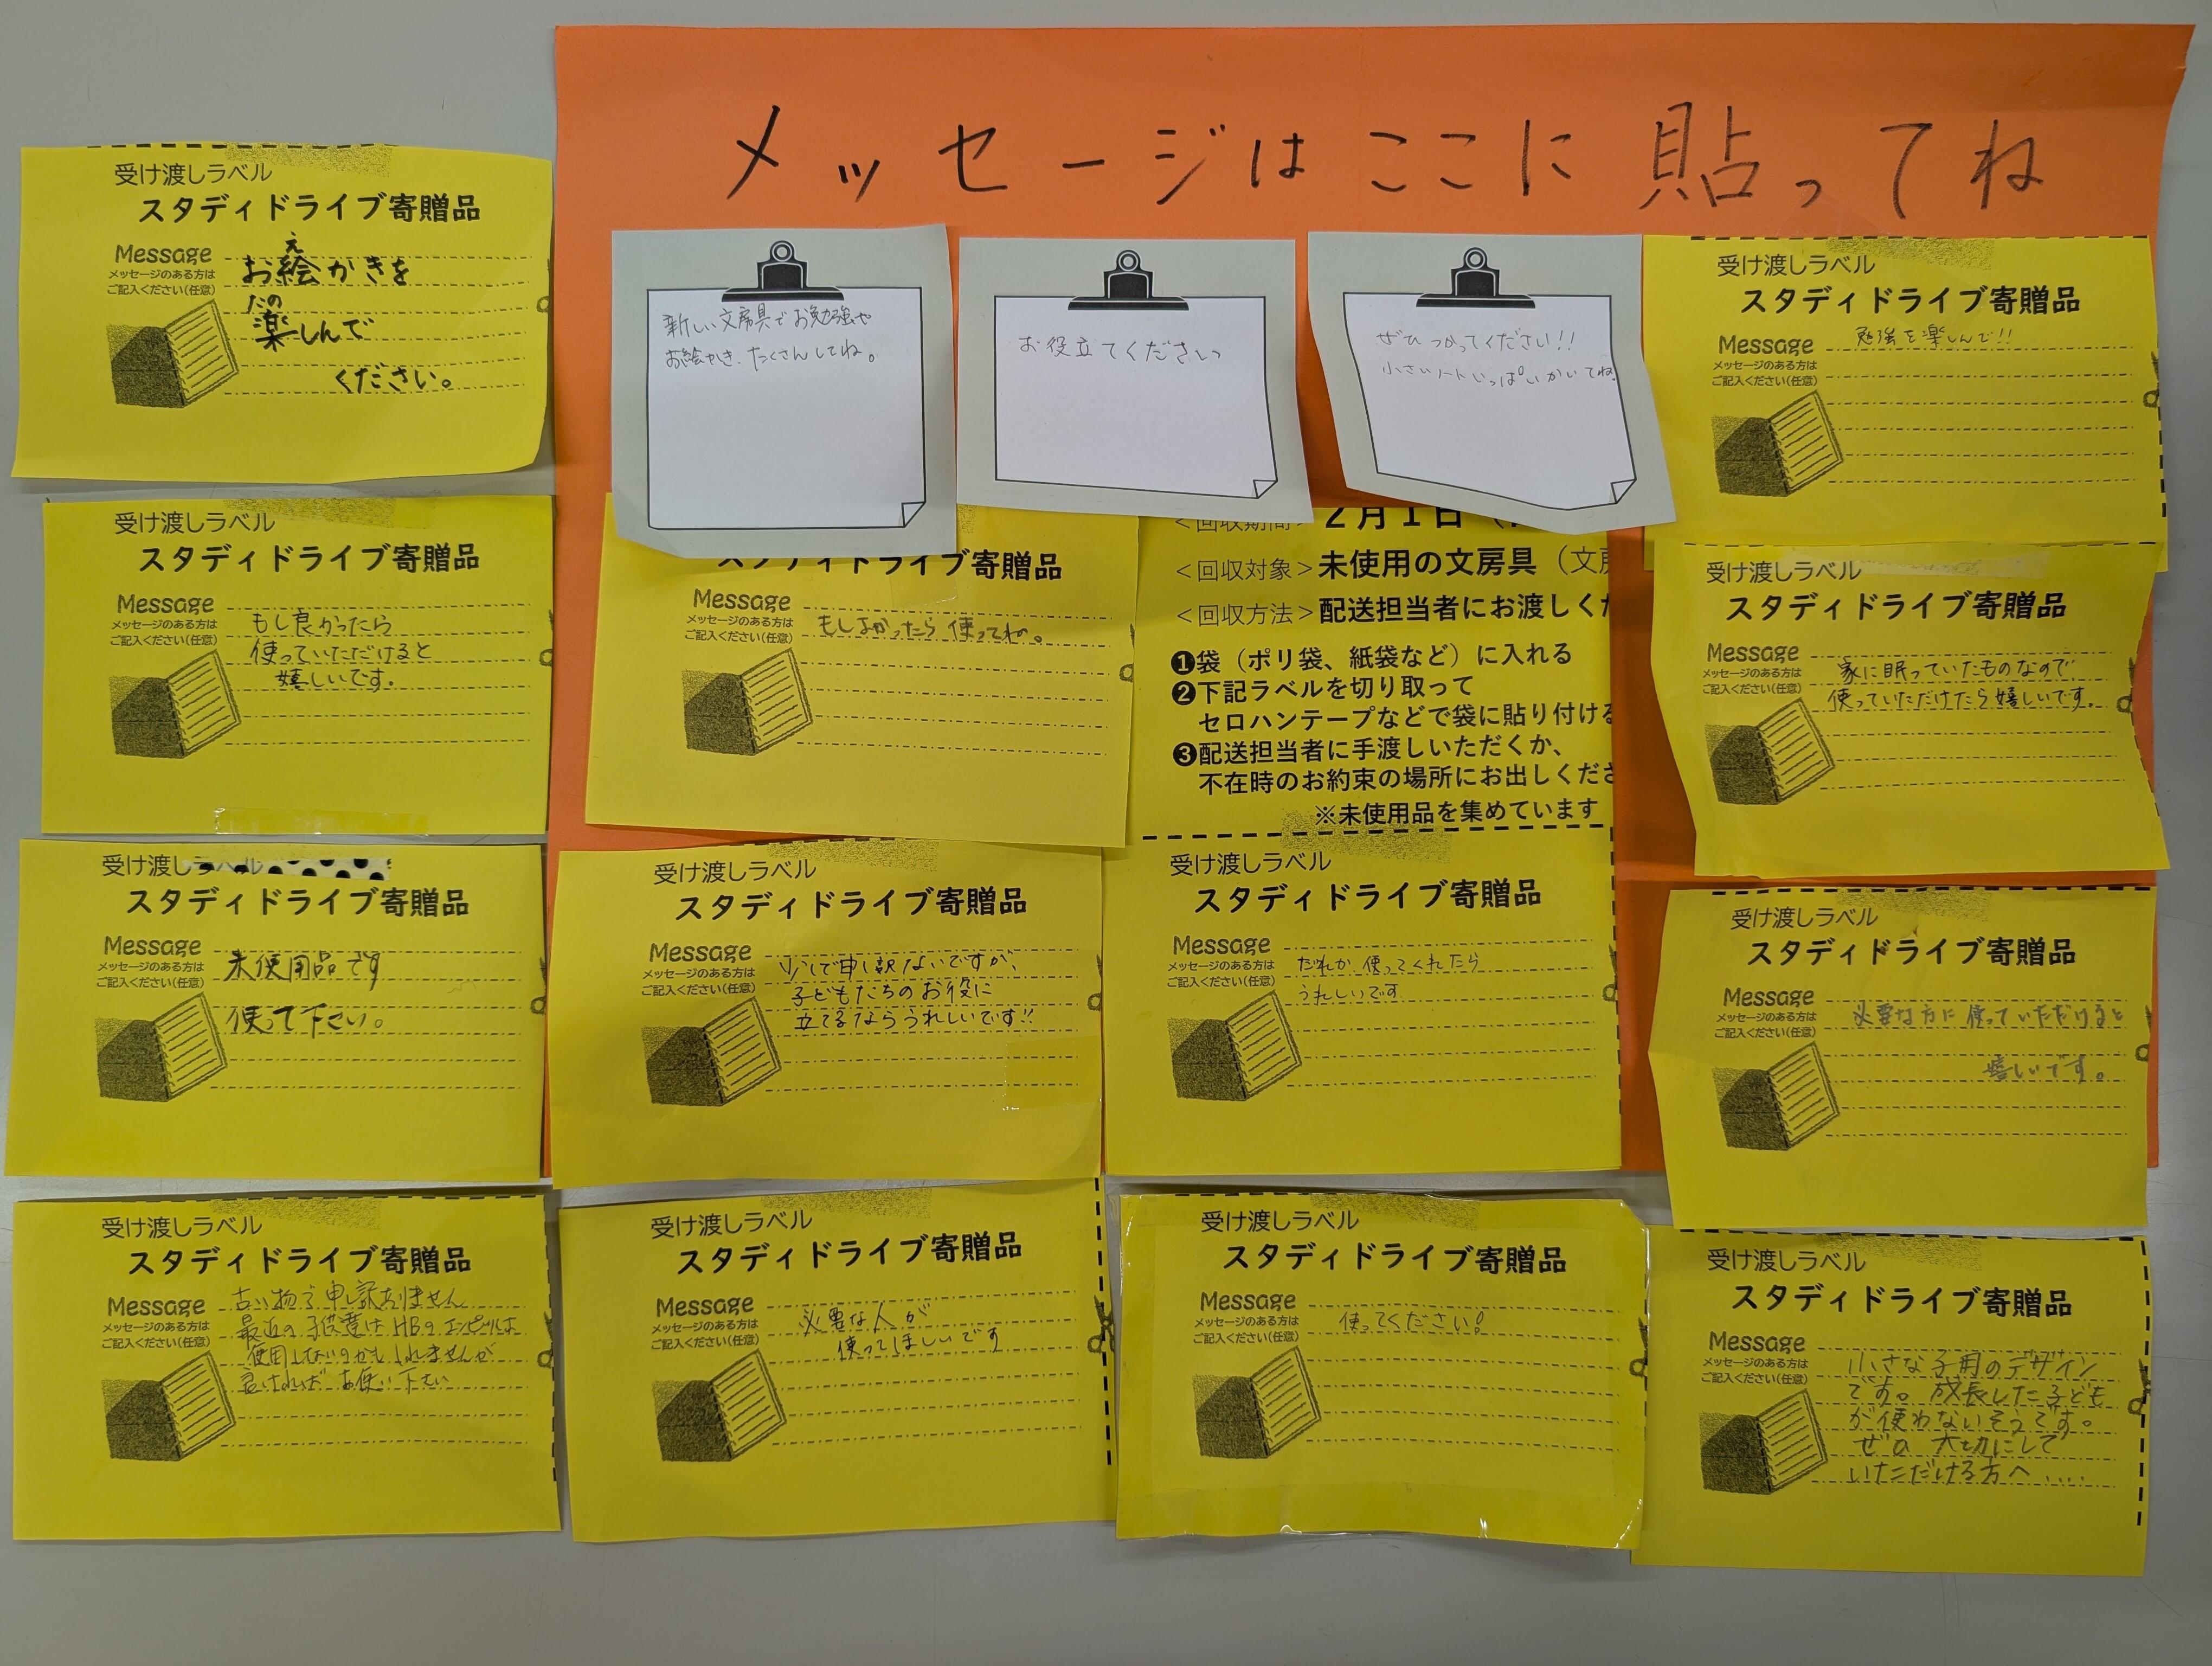 メッセージはここに貼ってね
受け渡しラベル
スタディドライブ寄贈品
Message
メッセージのある方は
ご記入ください(任意)
え
お絵かきを
たの
楽しんで
ください。
新しい文房具でお勉強や
お絵かき、たくさんしてね。
お役立てください
ぜひつかってください!!
小さいノートいっぱいかいてね
受け渡しラベル
スタディドライブ寄贈品
Message
メッセージのある方は
ご記入ください(任意)
勉強を楽しんで!!
受け渡しラベル
スタディドライブ寄贈品
Message
メッセージのある方は
ご記入ください(任意)
もし良かったら
使っていただけると
嬉しいです。
スタディドライブ寄贈品
Message
メッセージのある方は
ご記入ください(任意)
もしよかったら使ってね。
<回収期間>2月1日(
<回収対象>未使用の文房具(文房
<回収方法>配送担当者にお渡しくだ
❶袋(ポリ袋、紙袋など)に入れる
❷下記ラベルを切り取って
セロハンテープなどで袋に貼り付ける
❸配送担当者に手渡しいただくか、
不在時のお約束の場所にお出しくださ
※未使用品を集めています
受け渡しラベル
スタディドライブ寄贈品
Message
メッセージのある方は
ご記入ください(任意)
だれか使ってくれたら
うれしいです
受け渡しラベル
スタディドライブ寄贈品
Message
メッセージのある方は
ご記入ください(任意)
家に眠っていたものなので、
使っていただけたら嬉しいです。
受け渡しラベル
スタディドライブ寄贈品
Message
メッセージのある方は
ご記入ください(任意)
未使用品です
使って下さい。
受け渡しラベル
スタディドライブ寄贈品
Message
メッセージのある方は
ご記入ください(任意)
少しで申し訳ないですが、
子どもたちのお役に
立てるならうれしいです!!
受け渡しラベル
スタディドライブ寄贈品
Message
メッセージのある方は
ご記入ください(任意)
必要な方に使っていただけると
嬉しいです。
受け渡しラベル
スタディドライブ寄贈品
Message
メッセージのある方は
ご記入ください(任意)
古い物で申し訳ありません
最近の子供達はHBのエンピツは
使用しないのかもしれませんが
良ければお使い下さい
受け渡しラベル
スタディドライブ寄贈品
Message
メッセージのある方は
ご記入ください(任意)
必要な人が
使ってほしいです
受け渡しラベル
スタディドライブ寄贈品
Message
メッセージのある方は
ご記入ください(任意)
使ってください!
受け渡しラベル
スタディドライブ寄贈品
Message
メッセージのある方は
ご記入ください(任意)
小さな子用のデザイン
です。成長した子ども
が使わないそうです。
ぜひ大切にして
いただける方へ....